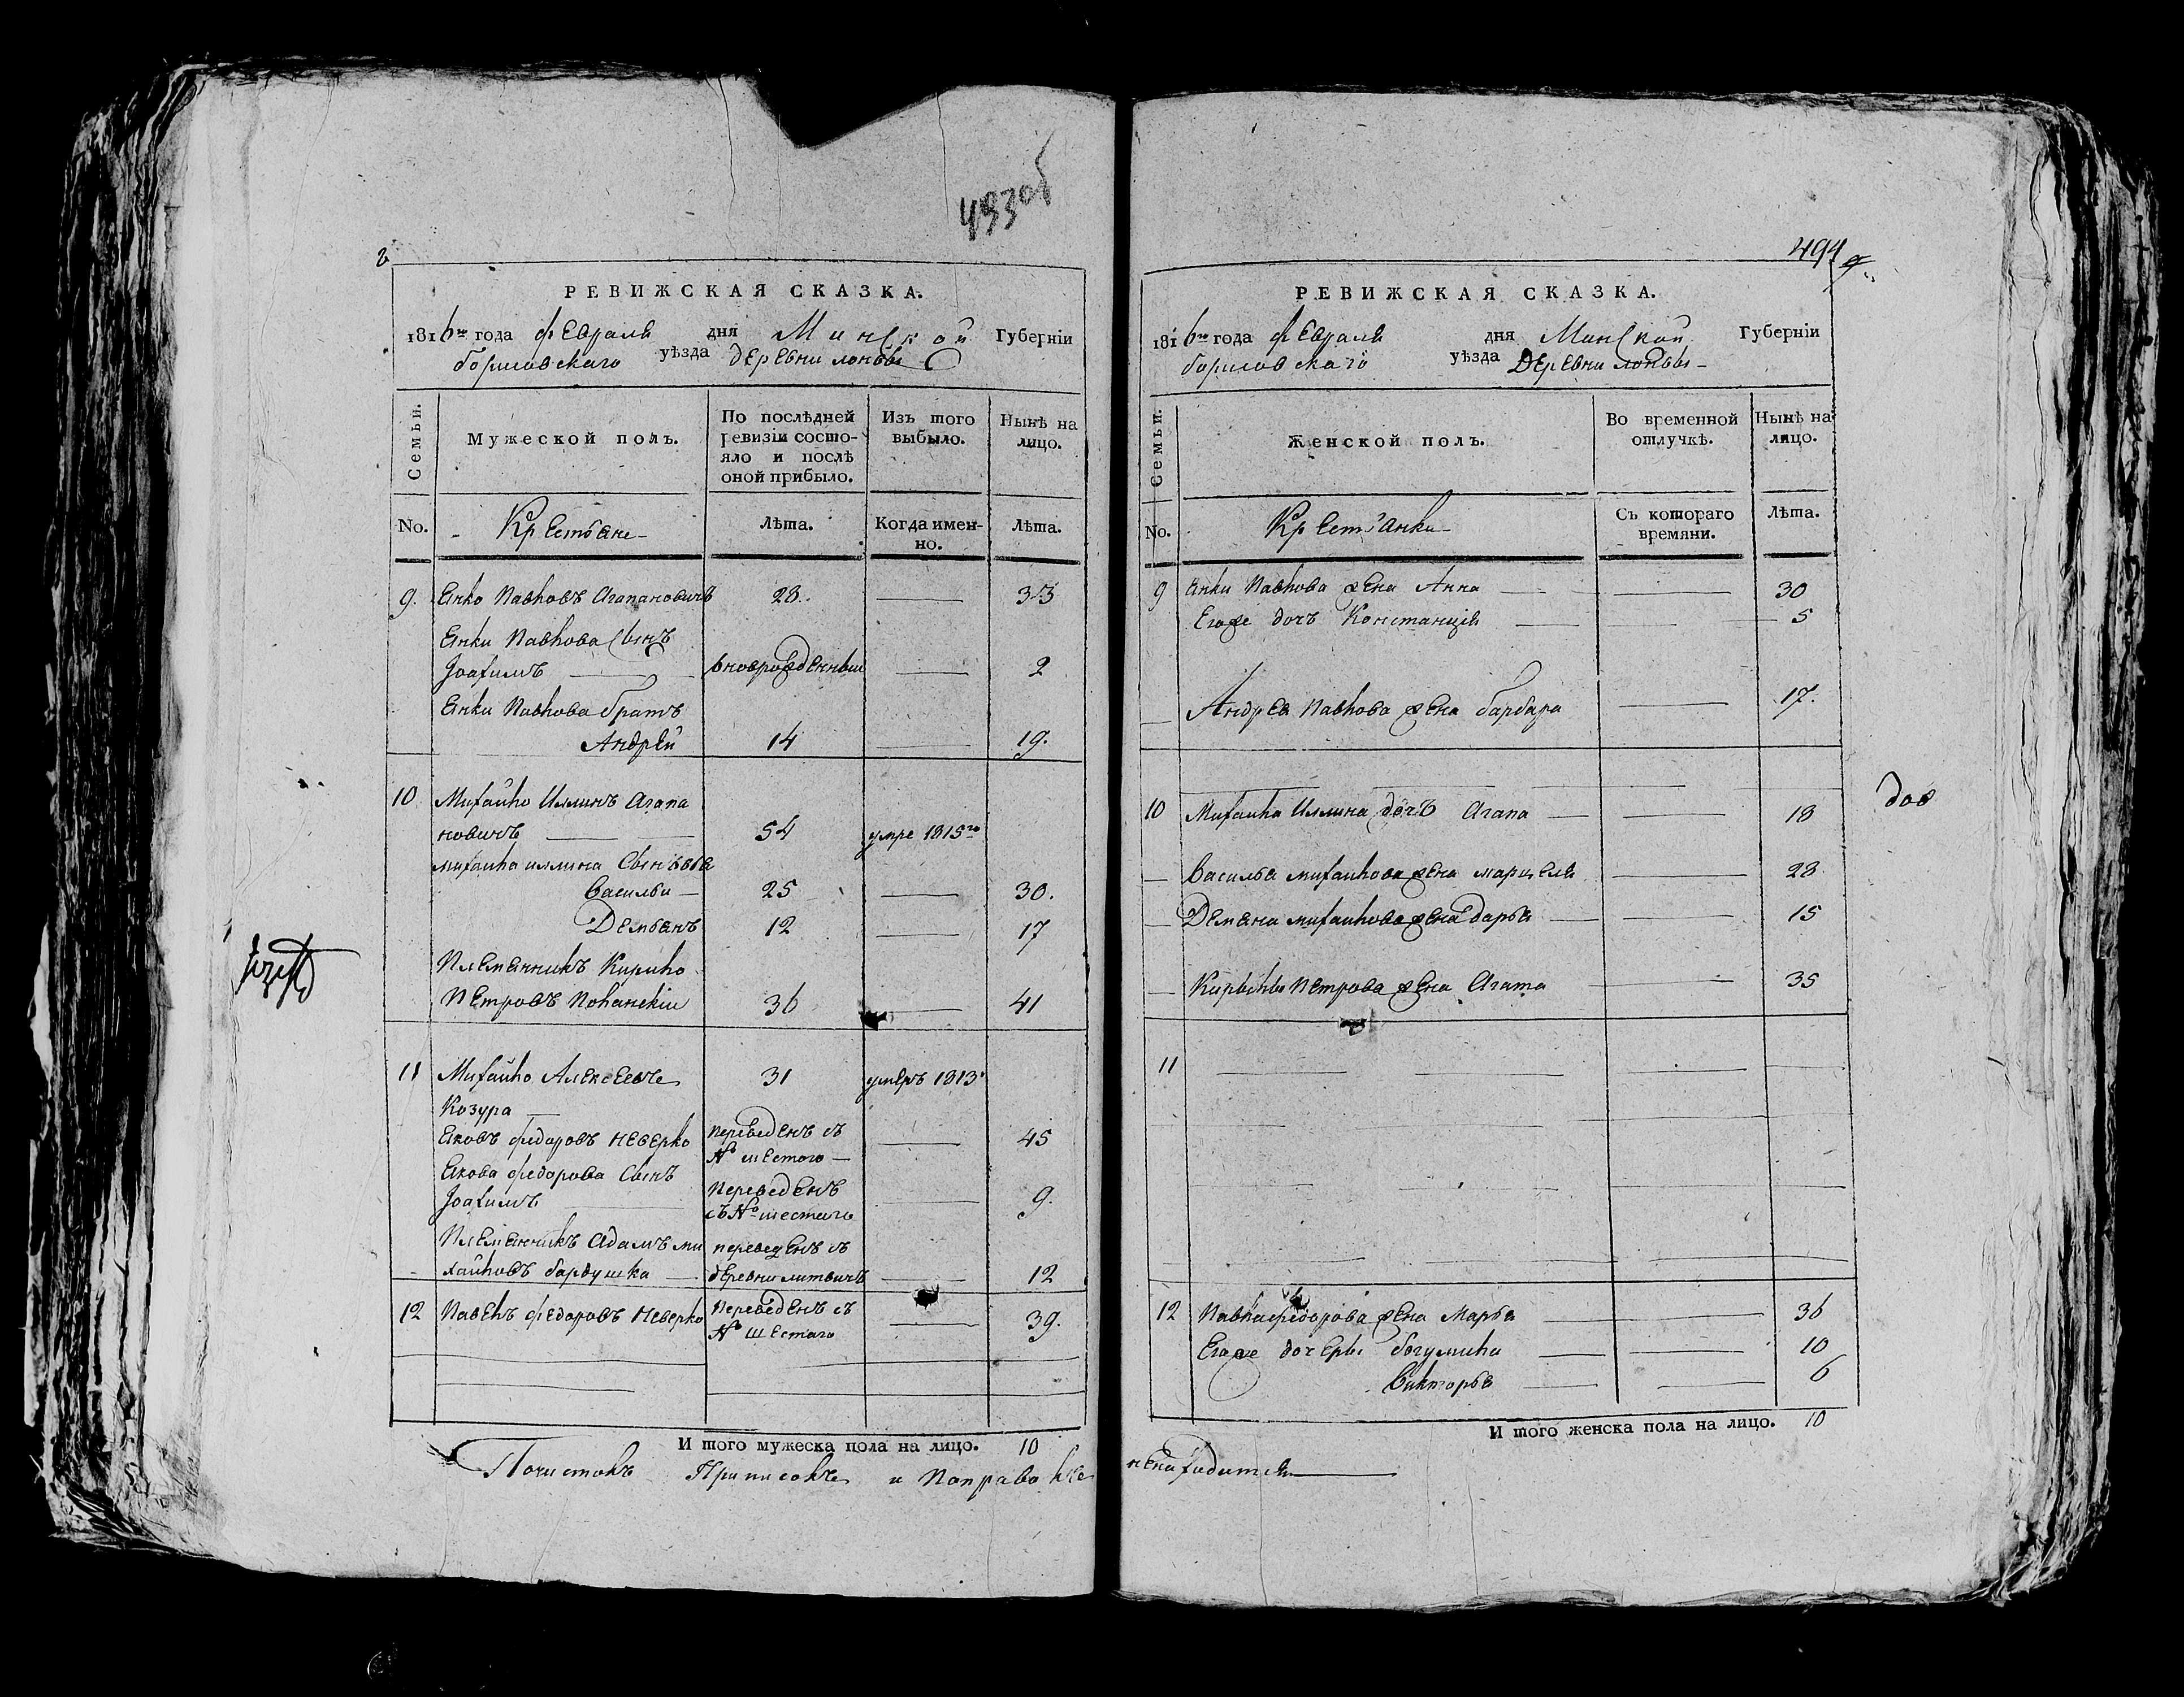 493об
8
РЕВИЖСКАЯ СКАЗКА.
1816го года февраля дня Минской Губерніи
борисовскаго уѣзда деревни лонвы
Семьи. Мужеской полъ. По послѣдней ревизіи состояло и послѣ оной прибыло. Изъ того выбыло. Нынѣ на лицо.
No. Крестьяне Лѣта. Когда именно. Лѣта.
9. Янко Павловъ Агапановичъ 28. 33
Янки Павлова сынъ
Іоахимъ вноврожденный 2
Янки Павлова братъ
Андрей 14 19.
10 Михайло Иллинъ Агапа
новичъ 54 умре 1815го
михайла иллина сыновья
Васильи 25 30.
Демьянъ 12 17
Племянникъ Кирило
Петровъ Поланскіи 36 41
11 Михайло Алексеевъ 31 умеръ 1813
Козура
Яковъ федоровъ Неверко переведенъ съ № шестого 45
Якова федорова сынъ
Іоахимъ переведенъ съ № шестаго 9.
Племянникъ Адамъ ми переведенъ съ
хайловъ бардушка деревни литвичъ 12
12 Павелъ федоровъ Неверко переведенъ съ № шестаго 39.
И того мужеска пола на лицо. 10
Почистокъ Приписокъ и Поправокъ
494
РЕВИЖСКАЯ СКАЗКА.
1816го года февраля дня Минской Губерніи
борисовскаго уѣзда деревни лонвы
Семьи. Женской полъ. Во временной отлучкѣ. Нынѣ на лицо.
No. Крестьянки Съ котораго времяни. Лѣта.
9 Янки Павлова жена Анна 30
Егоже дочъ Констанція 5
Андрея Павлова жена барбара 17.
10 Михайла Иллина дочъ Агапа 18
Василья михайлова жена марцеля 28
Демяна михайлова жена дарья 15
Кирылы Петрова жена Агата 35
11
12 Павла федорова жена Марья 36
Егоже дочеры богумила 10
Викторья 6
И того женска пола на лицо. 10
ненаходится